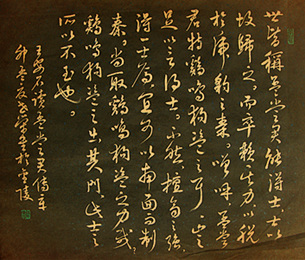 世皆稱孟嘗君能得士士以
故歸之而卒賴其力以脫
於虎豹之秦嗟呼孟嘗
君特鷄鳴狗盜之耳豈
足以言得士不然擅齊之強
得士焉宜可以南面而制
秦尚取鷄鳴狗盜之力哉
鷄鳴狗盜之出其門此士之
所以不至也
王安石讀孟嘗君傳